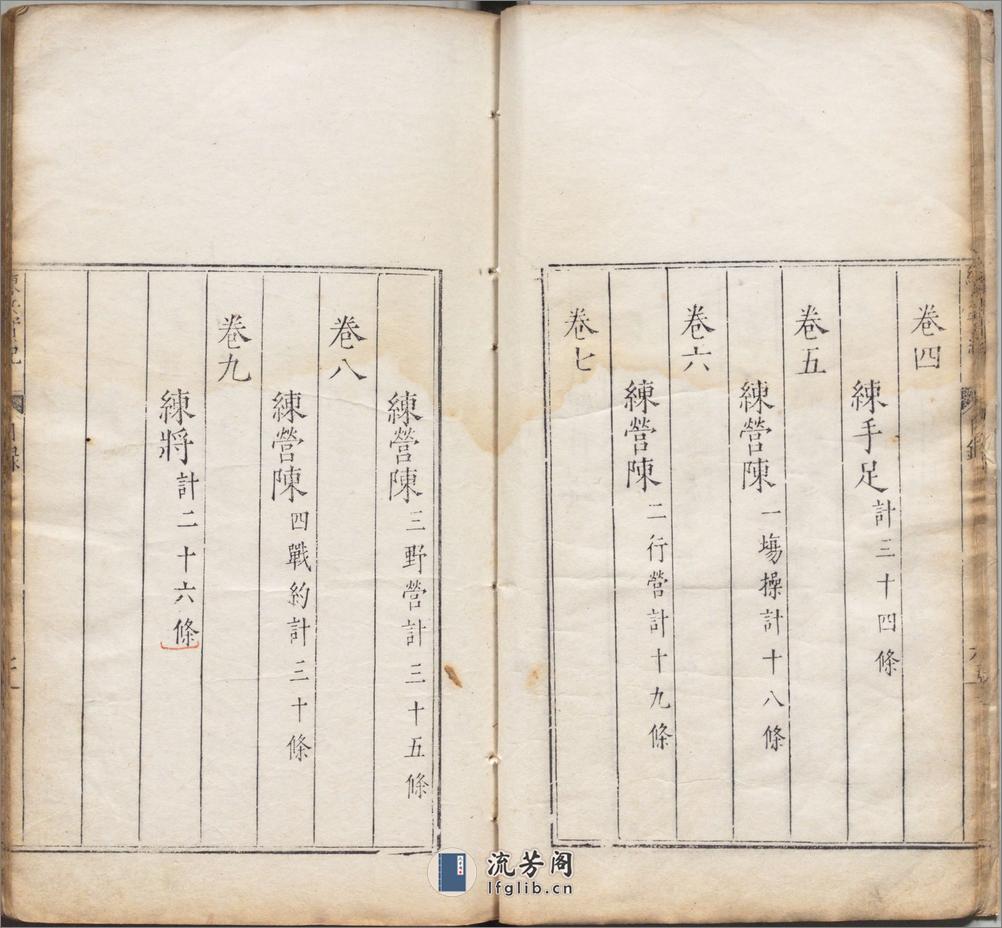 卷四
練手足計三十四條
卷五
練營陳一塲操計十八條
卷六
練營陳二行營計十九條
卷七
練營陳三野營計三十五條
卷八
練營陳四戰約計三十條
卷九
練將計二十六條
練兵實紀
目錄
流芳阁
lfglib.cn